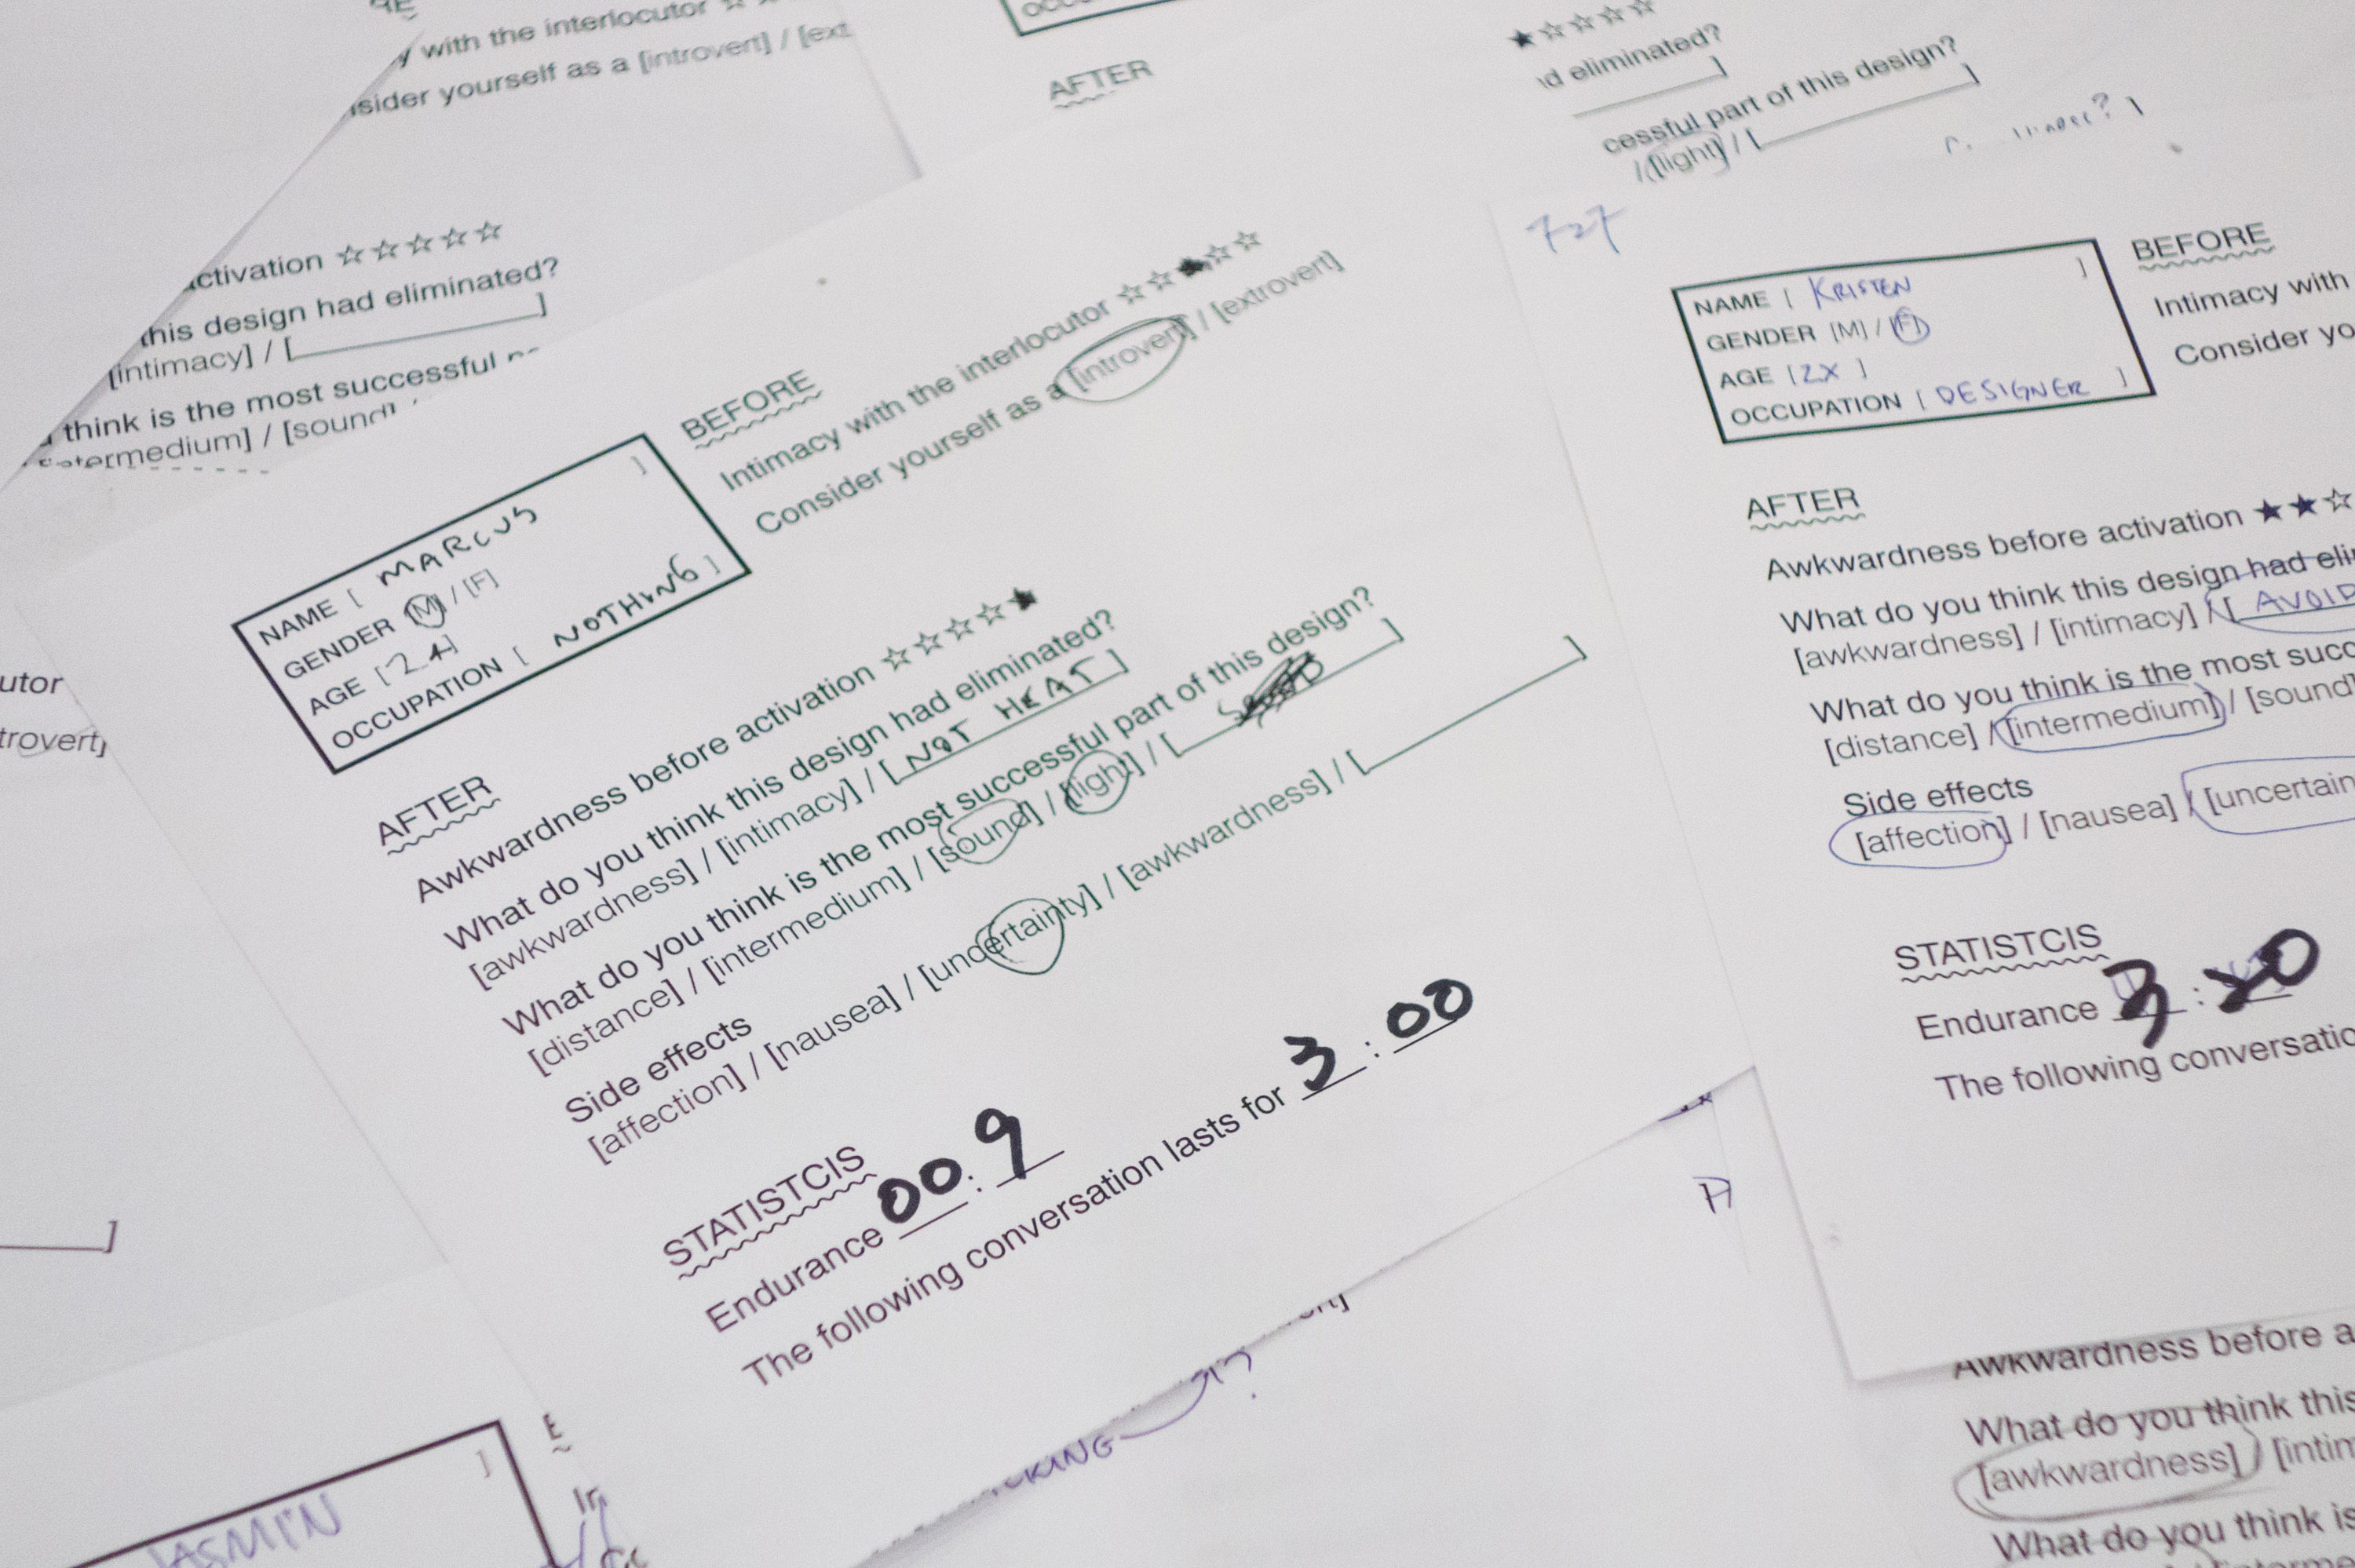 with the interlocutor ☆
sider yourself as a [introvert] / [ext
AFTER
★☆☆☆☆
d eliminated?
]
cessful part of this design?
/ [light] / [ ]
ctivation ☆☆☆☆☆
this design had eliminated?
[intimacy] / [ ]
think is the most successful
termedium] / [sound]
utor
trovert]
]
NAME [ MARCUS ]
GENDER [M] / [F]
AGE [24]
OCCUPATION [ NOTHING ]
BEFORE
Intimacy with the interlocutor ☆☆★☆☆
Consider yourself as a [introvert] / [extrovert]
AFTER
Awkwardness before activation ☆☆☆☆★
What do you think this design had eliminated?
[awkwardness] / [intimacy] / [ NOT HEAT ]
What do you think is the most successful part of this design?
[distance] / [intermedium] / [sound] / [light] / [ ]
Side effects
[affection] / [nausea] / [uncertainty] / [awkwardness] / [ ]
STATISTCIS
Endurance 00:9
The following conversation lasts for 3:00
727
NAME [ KRISTEN ]
GENDER [M] / [F]
AGE [2X ]
OCCUPATION [ DESIGNER ]
BEFORE
Intimacy with
Consider yo
AFTER
Awkwardness before activation ★★☆
What do you think this design had eli
[awkwardness] / [intimacy] / [ AVOID
What do you think is the most succ
[distance] / [intermedium] / [sound]
Side effects
[affection] / [nausea] / [uncertain
STATISTCIS
Endurance 3:20
The following conversatio
Awkwardness before a
What do you think this
[awkwardness] / [intim
What do you think is
ASMIN ]